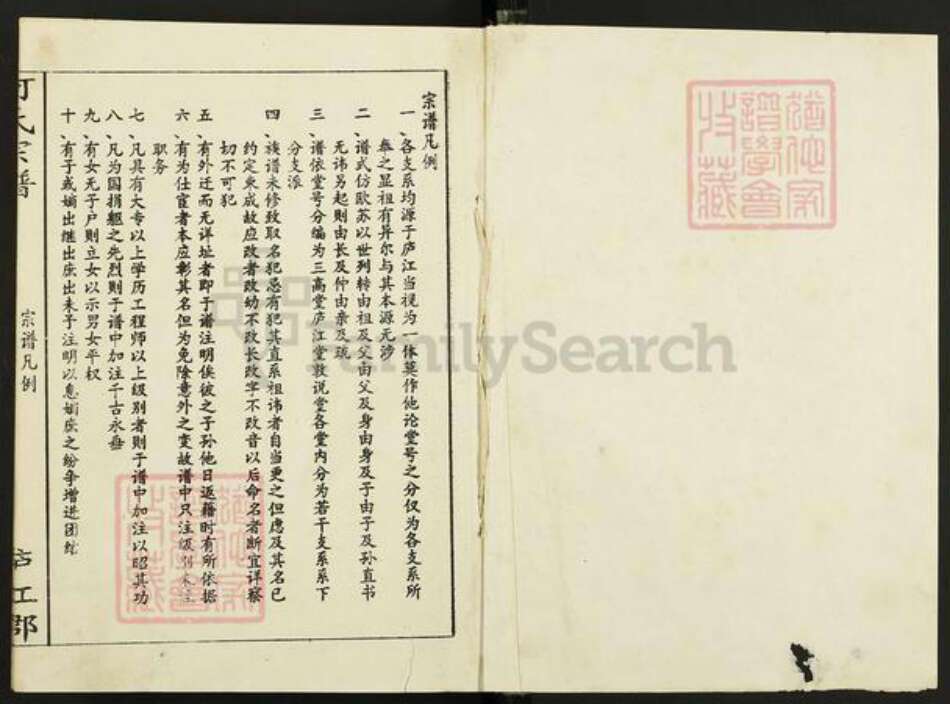 宗谱凡例
一、各支系均源于庐江当视为一体莫作他论堂号之分仅为各支系所
奉之显祖有异尔与其本源无涉
二、谱式仿欧苏以世列转由祖及父由父及身由身及子由子及孙直书
无讳另起则由长及仲由亲及疏
三、谱依堂号分编为三高堂庐江堂敦说堂各堂内分为若干支系系下
分支派
四、族谱未修致取名犯忌有犯其直系祖讳者自当更之但虑及其名已
约定来成故应改者改幼不改长改字不改音以后命名者断宜详察
切不可犯
五、有外迁而无详址者即于谱注明俟彼之子孙他日返籍时有所依据
六、有为仕宦者本应彰其名但为免除意外之变故谱中只注级别未注
职务
七、凡具有大专以上学历工程师以上级别者则于谱中加注以昭其功
八、凡为国捐躯之先烈则于谱中加注千古永垂
九、有女无子户则立女以示男女平权
十、有子或嫡出继出庶出未予注明以息嫡庶之纷争增进团结
何氏宗谱
宗谱凡例
庐江郡
谱学会
收藏
FamilySearch